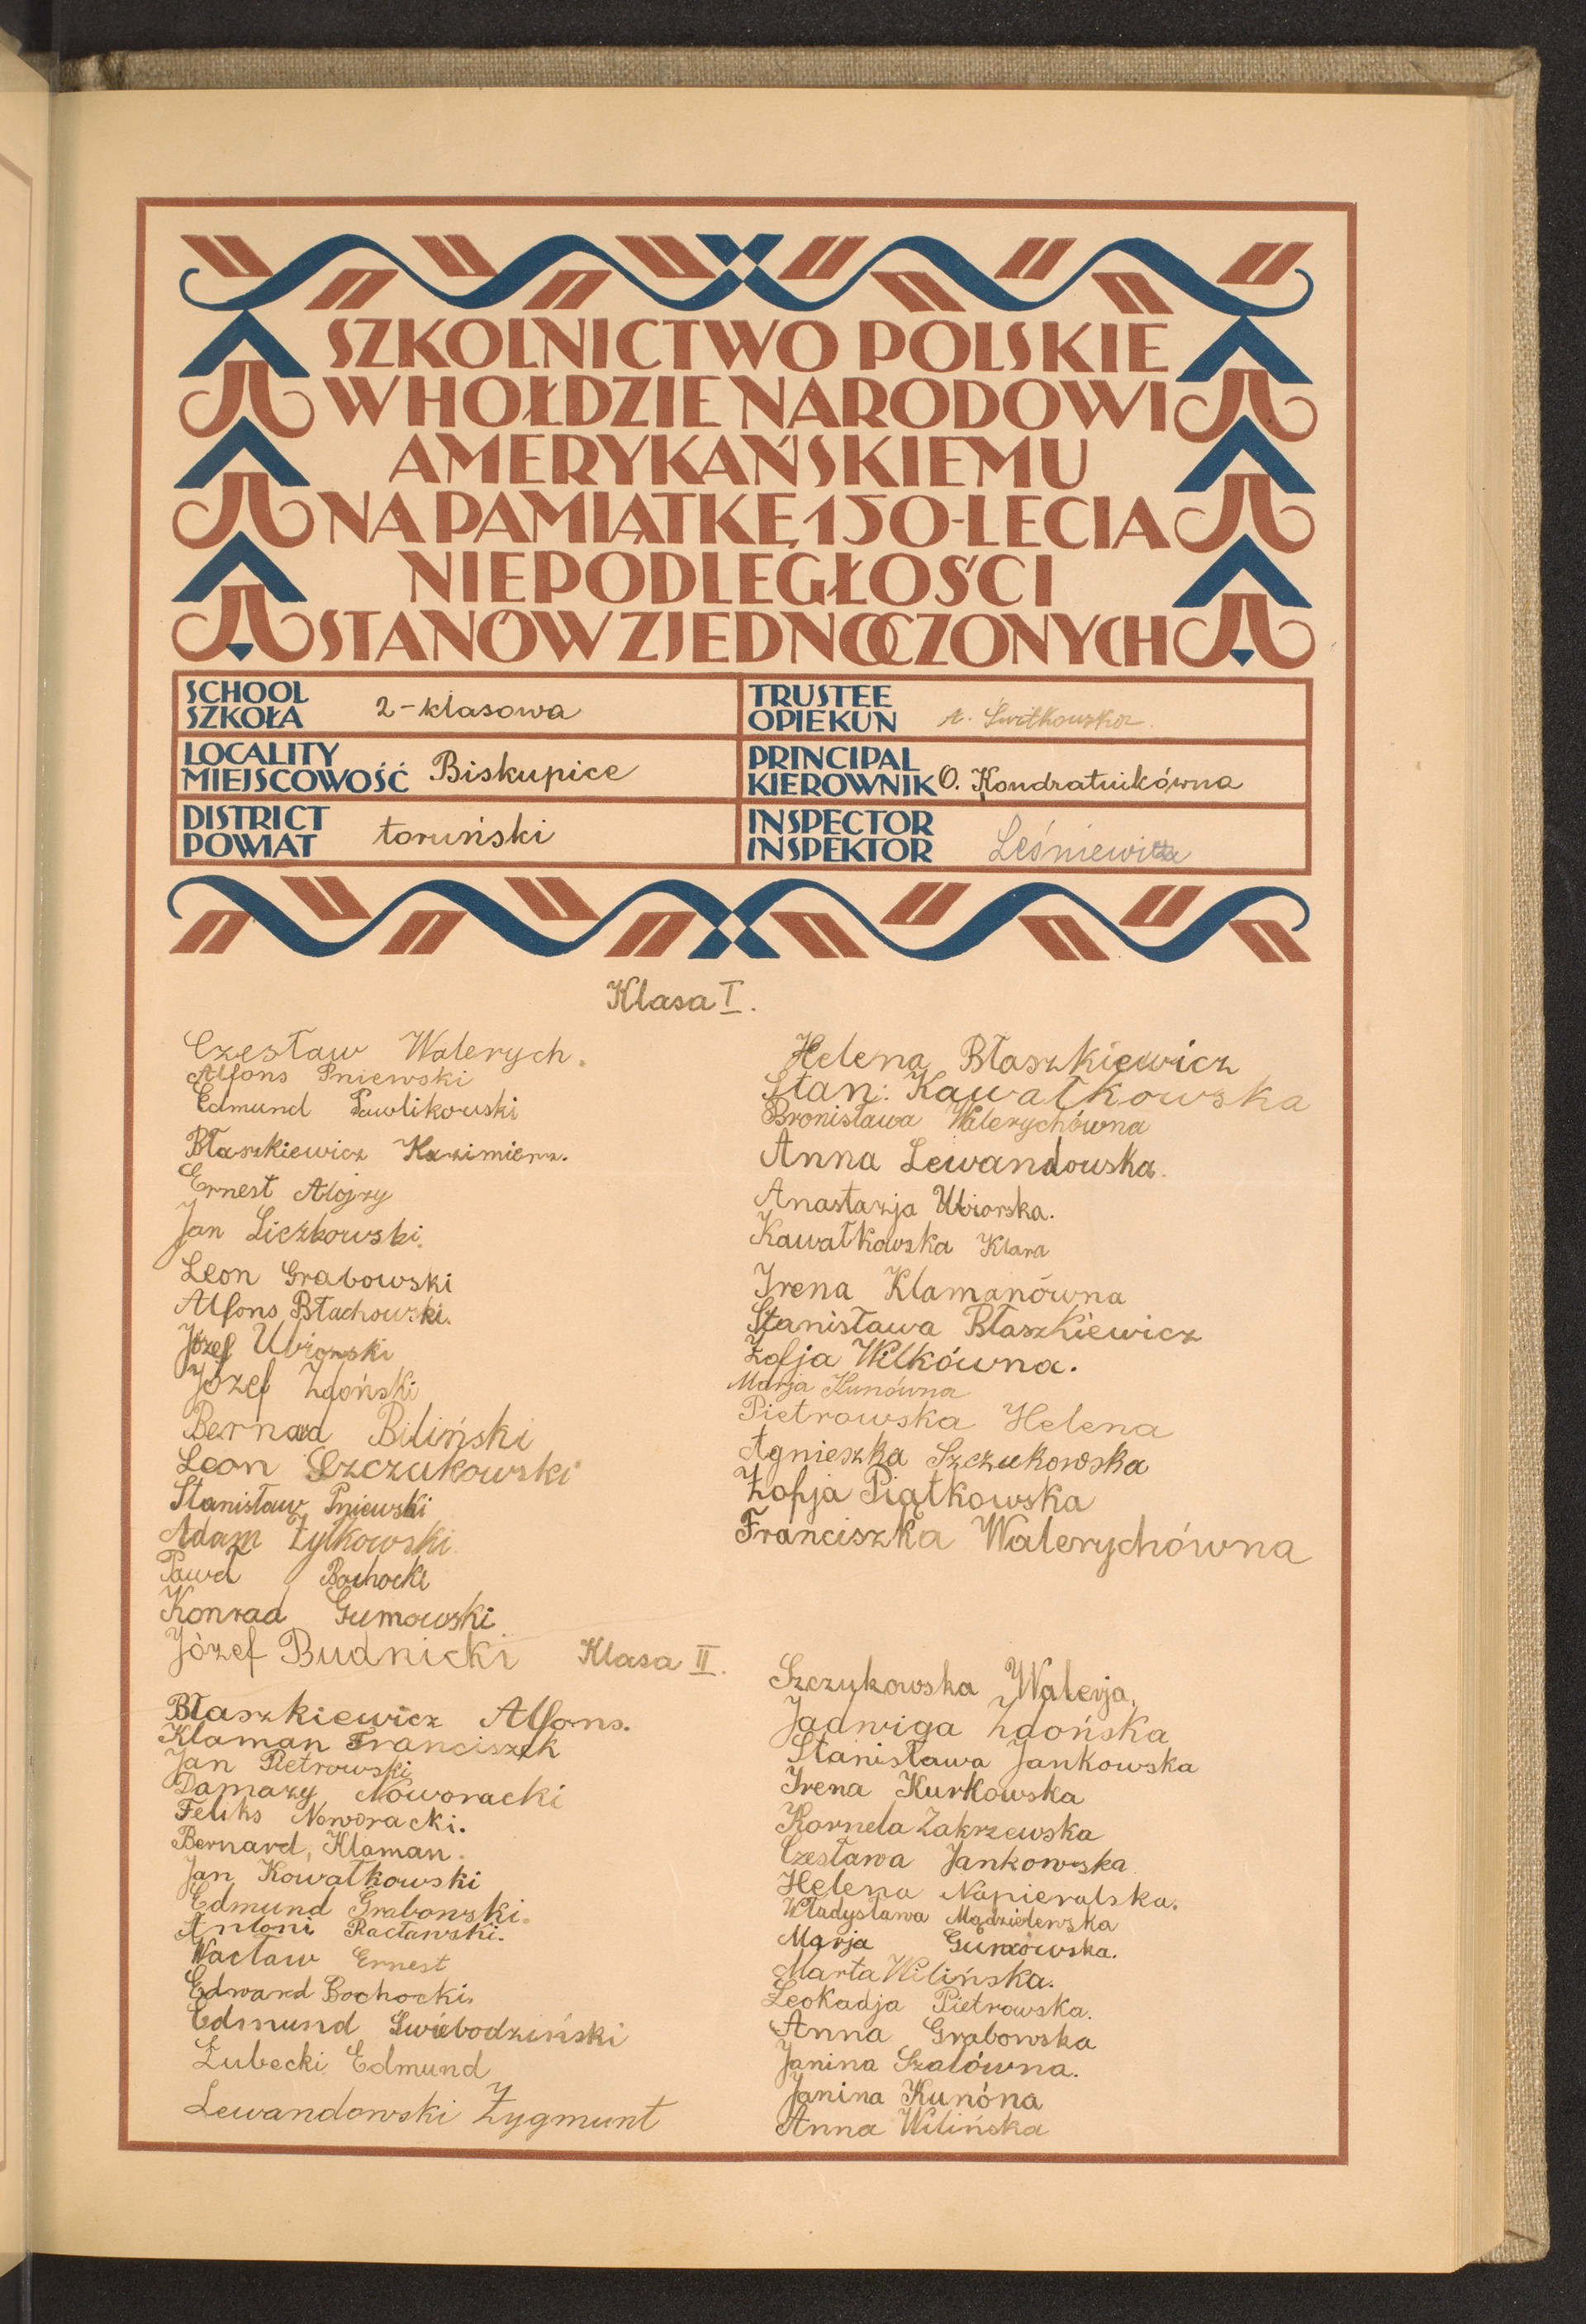 SZKOLNICTWO POLSKIE
W HOŁDZIE NARODOWI
AMERYKAŃSKIEMU
NA PAMIĄTKĘ 150-LECIA
NIEPODLEGŁOŚCI
STANÓW ZJEDNOCZONYCH
SCHOOL
SZKOŁA 2-klasowa
TRUSTEE
OPIEKUN A. Świtkowska
LOCALITY
MIEJSCOWOŚĆ Biskupice
PRINCIPAL
KIEROWNIK O. Kondratuikówna
DISTRICT
POWIAT toruński
INSPECTOR
INSPEKTOR Leśniewicz
Klasa I.
Czesław Walerych.
Alfons Pniewski
Edmund Pawlikowski
Błaszkiewicz Kazimierz.
Ernest Alojzy
Jan Liczkowski.
Leon Grabowski
Alfons Błachowski.
Józef Ubiorski
Józef Zdoński
Bernard Biliński
Leon Szczukowski
Stanisław Pniewski
Adam Żytkowski.
Paweł Bochocki
Konrad Gumowski
Józef Budnicki
Helena Błaszkiewicz
Stan: Kawałkowska
Bronisława Walerychówna
Anna Lewandowska.
Anastazja Ubiorska.
Kawałkowska Klara
Irena Klamanówna
Stanisława Błaszkiewicz
Zofja Wilkówna.
Marja Kunówna
Pietrowska Helena
Agnieszka Szczukowska
Zofja Piątkowska
Franciszka Walerychówna
Klasa II.
Błaszkiewicz Alfons.
Klaman Franciszek
Jan Pietrowski
Damazy Noworacki
Feliks Noworacki.
Bernard, Klaman.
Jan Kowałkowski
Edmund Grabowski.
Antoni Racławski.
Wacław Ernest
Edward Bochocki.
Edmund Świebodziński
Żubecki Edmund
Lewandowski Zygmunt
Szczukowska Walerja,
Jadwiga Zdońska
Stanisława Jankowska
Irena Kurkowska
Kornela Zakrzewska
Czesława Jankowska
Helena Napieralska.
Władysława Mądzielewska
Marja Gumowska.
Marta Wilińska.
Leokadja Pietrowska.
Anna Grabowska
Janina Szalówna.
Janina Kunóna
Anna Wilińska